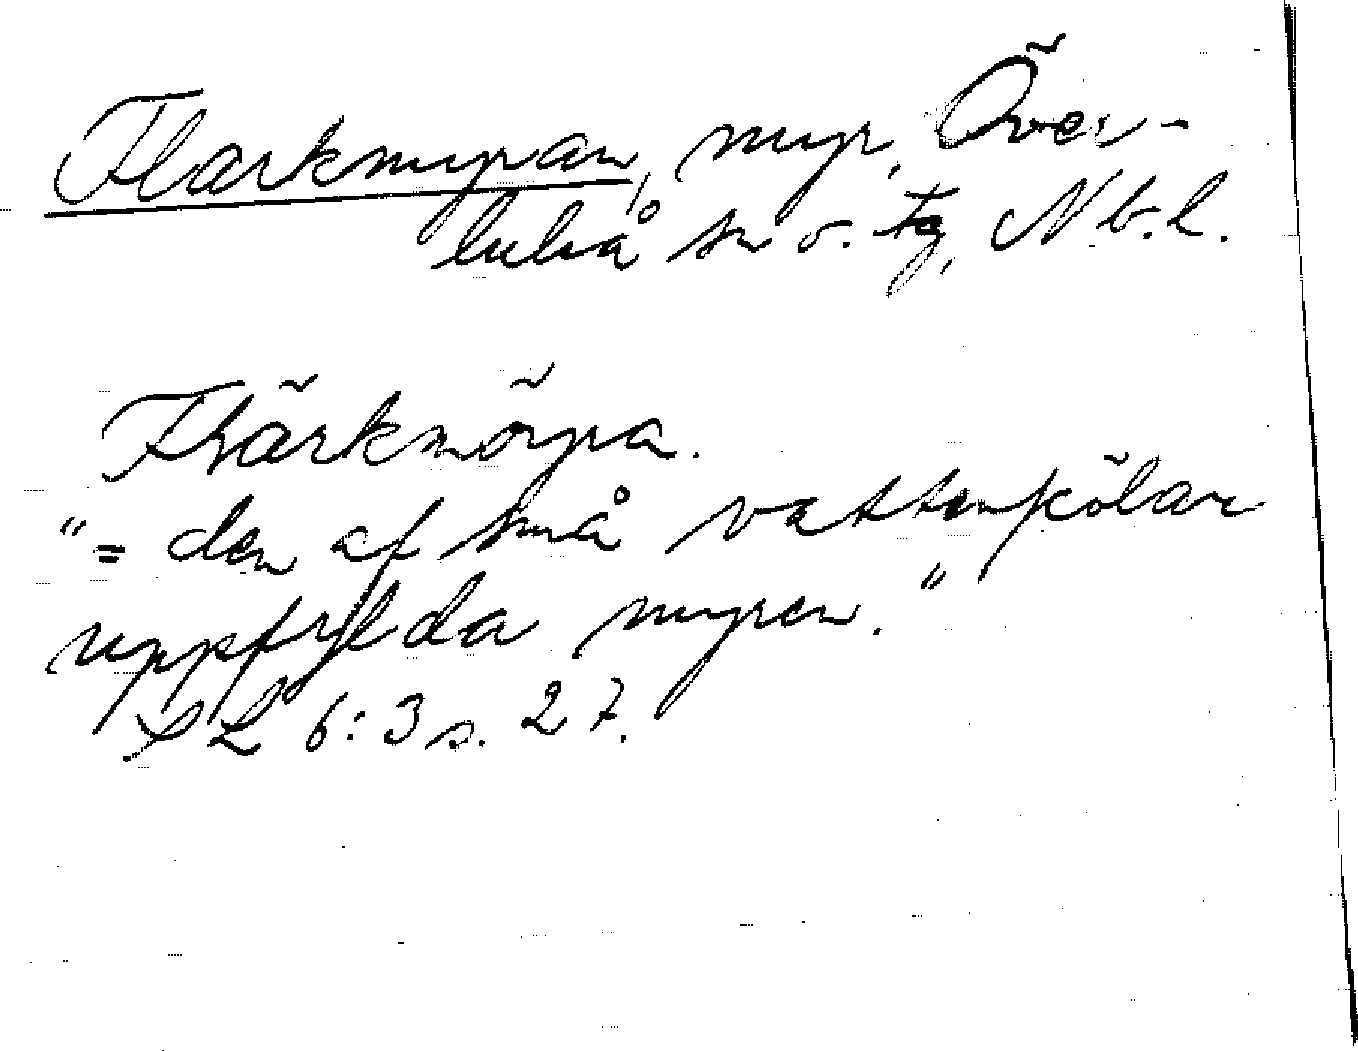 Flarkmyran, myr, Över-
luleå sn o. tg, Nb.l.
Flärkmöyra.
"= den af små vattenpölar
uppfyllda myren."
SL 6:3 s. 27.